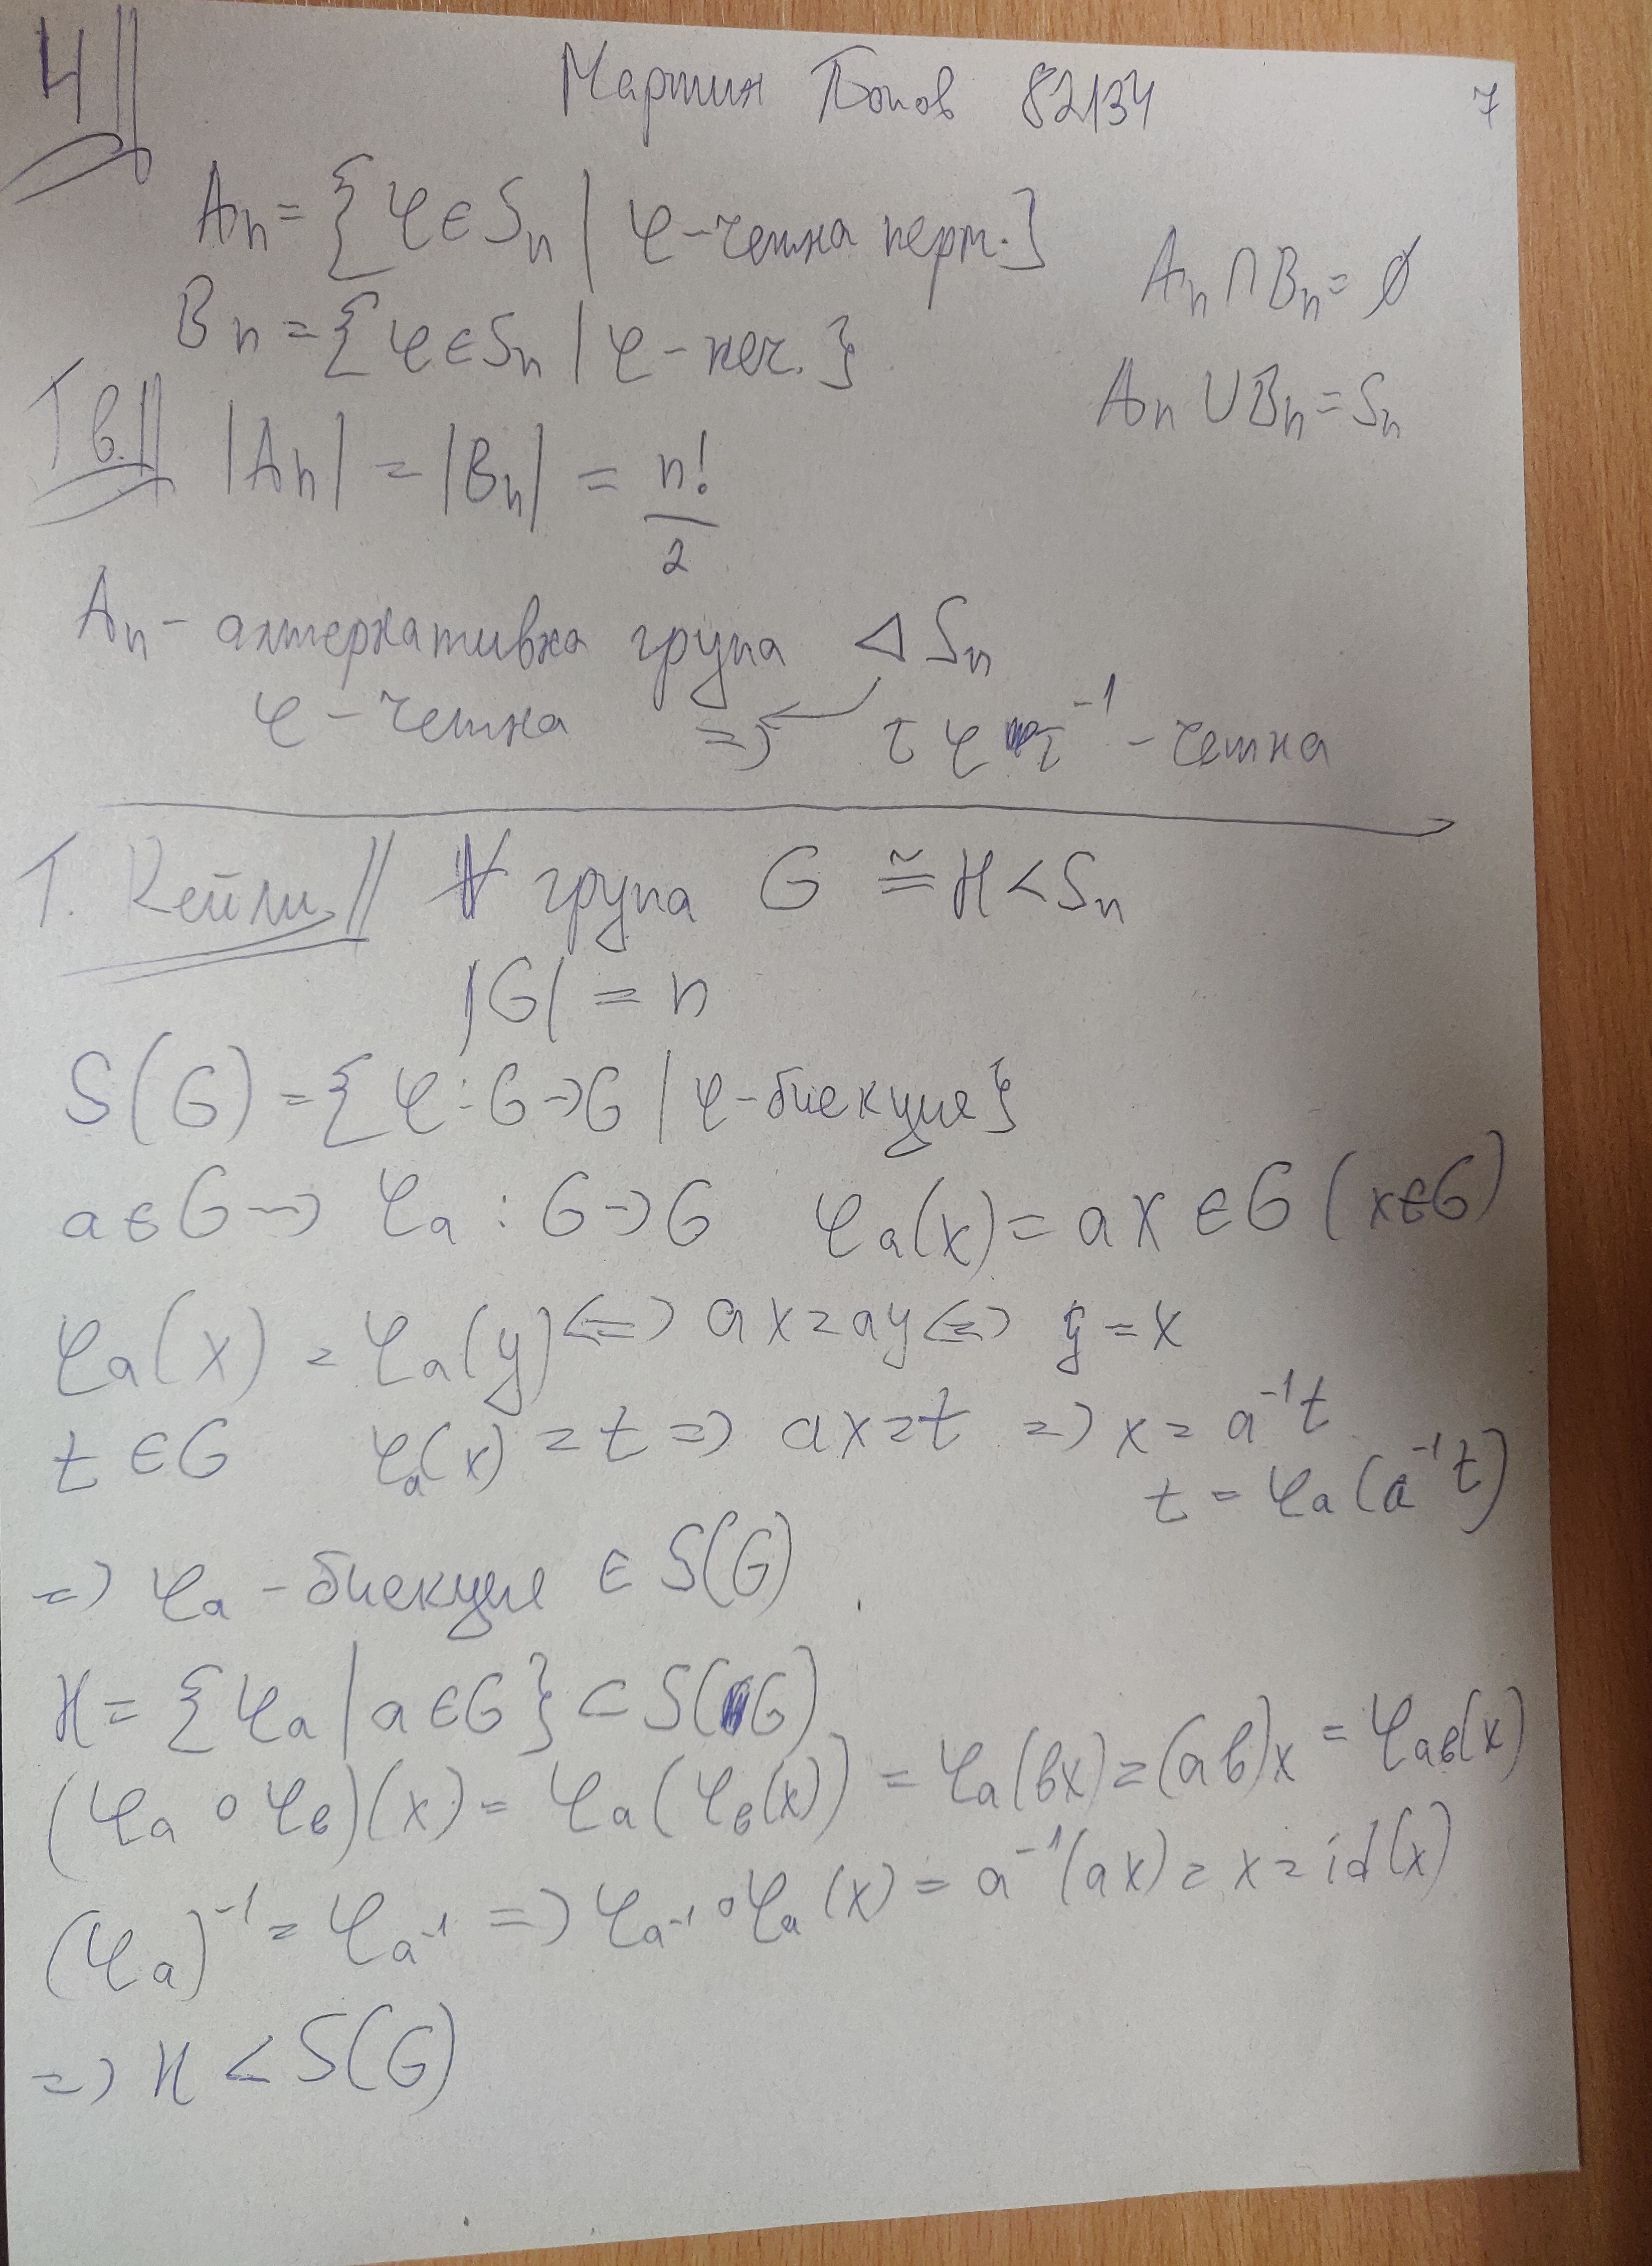 4||
Мартин Попов 82134
7
Aₙ = {φ ∈ Sₙ | φ - четна перм.}
Aₙ ∩ Bₙ = ∅
Bₙ = {φ ∈ Sₙ | φ - неч.}
Aₙ ∪ Bₙ = Sₙ
Тв.|| |Aₙ| = |Bₙ| = n!/2
Aₙ - алтернативна група ⊲ Sₙ
φ - четна => τφτ⁻¹ - четна
Т. Кейли || ∀ група G ≅ H < Sₙ
|G| = n
S(G) = {φ : G -> G | φ - биекция}
a ∈ G -> φₐ : G -> G φₐ(x) = ax ∈ G (x ∈ G)
φₐ(x) = φₐ(y) <=> ax = ay <=> y = x
t ∈ G φₐ(x) = t => ax = t => x = a⁻¹t
t = φₐ(a⁻¹t)
=> φₐ - биекция ∈ S(G)
H = {φₐ | a ∈ G} ⊂ S(G)
(φₐ ∘ φ_в)(x) = φₐ(φ_в(x)) = φₐ(вx) = (aв)x = φ_aв(x)
(φₐ)⁻¹ = φ_a⁻¹ => φ_a⁻¹ ∘ φₐ(x) = a⁻¹(ax) = x = id(x)
=> H < S(G)